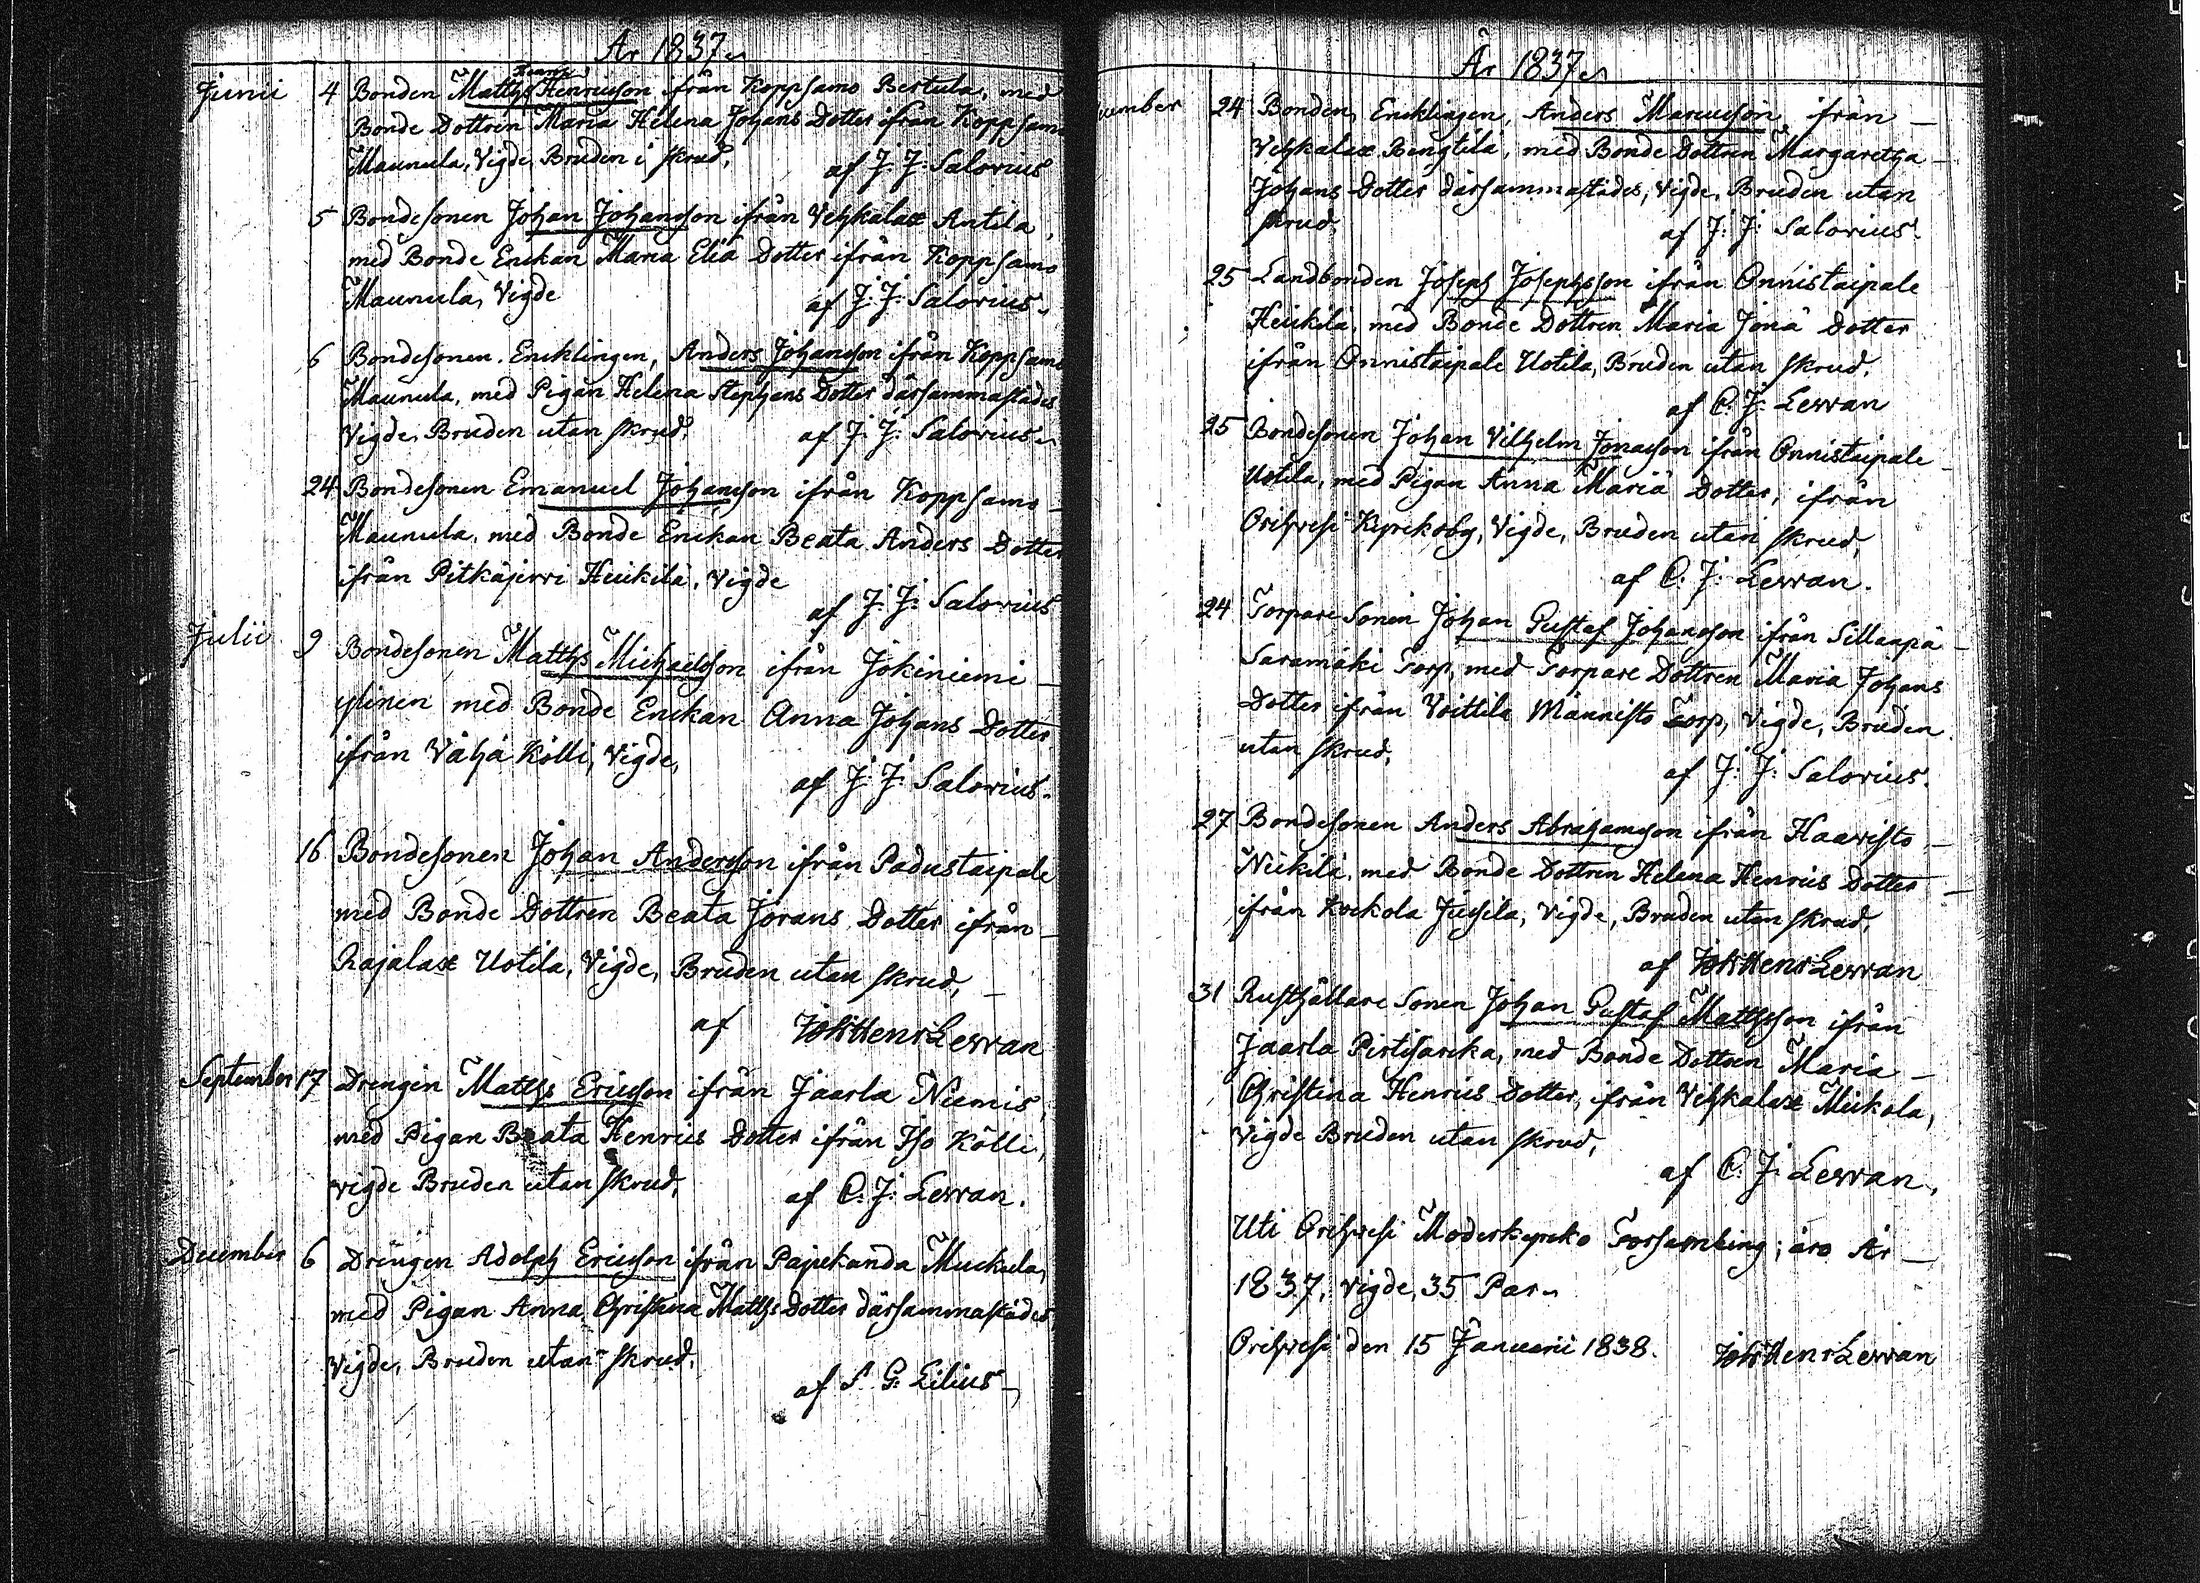 År 1837.
Junii 4 Bonden Matths Henricsson ifrån Koppsamo Bertula, med
Bonde Dottren Maria Helena Johans Dotter ifrån Koppsamo
Maunula, Vigde, Bruden i skrud,
af J: J: Salovius
5 Bondesonen Johan Johansson ifrån Vehkalax Antila,
med Bonde Enckan Maria Eliæ Dotter ifrån Koppsamo
Maunula, Vigde
af J: J: Salovius.
6 Bondesonen, Encklingen, Anders Johansson ifrån Koppsamo
Maunula, med Pigan Helena Stephans Dotter därsammastädes
Vigde, Bruden utan skrud,
af J: J: Salovius.
24 Bondesonen Emanuel Johansson ifrån Koppsamo
Maunula, med Bonde Enckan Beata Anders Dotter
ifrån Pitkäjerwi Heickilä, Vigde
af J: J: Salovius
Julii 9 Bondesonen Matths Michaelsson ifrån Jokiniemi
ylinen med Bonde Enckan Anna Johans Dotter
ifrån Vähä Kölli, Vigde,
af J: J: Salovius.
16 Bondesonen Johan Andersson ifrån Padustaipale
med Bonde Dottren Beata Jörans Dotter ifrån
Rajalax Uotila, Vigde, Bruden utan skrud,
af Joh Henr Levvan
September 17 Drengen Matths Ericsson ifrån Jaarla Niemis,
med Pigan Beata Henrics Dotter ifrån Iso Kölli,
vigde Bruden utan skrud,
af C: J: Levvan.
December 6 Drengen Adolph Ericsson ifrån Papekanda Muckula,
med Pigan Anna Christina Matths Dotter därsammastädes
Vigde, Bruden utan skrud,
af S G: Lilius
År 1837.
cember 24 Bonden, Encklingen, Anders Marcusson ifrån
Vehkalax Bengtilä, med Bonde Dottren Margaretha
Johans Dotter därsammastädes, Vigde, Bruden utan
skrud,
af J: J: Salovius.
25 Landbonden Joseph Josephsson ifrån Onnistaipale
Heickilä, med Bonde Dottren Maria Jonæ Dotter
ifrån Onnistaipale Uotila, Bruden utan skrud,
af C: J: Levvan
25 Bondesonen Johan Vilhelm Jonasson ifrån Onnistaipale
Uotila, med Pigan Anna Mariæ Dotter, ifrån
Orihvesi Kyrckoby, Vigde, Bruden utan skrud,
af C: J: Levvan.
24 Torpare Sonen Johan Gustaf Johansson ifrån Sillanpä
Saramäki Torp, med Torpare Dottren Maria Johans
Dotter ifrån Voittila Männisto Torp, Vigde, Bruden
utan skrud,
af J: J: Salovius.
27 Bondesonen Anders Abrahamsson ifrån Haavisto
Neickilä, med Bonde Dottren Helena Henrics Dotter
ifrån Kockola Jussila, Vigde, Bruden utan skrud,
af Joh Henr Levvan
31 Rusthållare Sonen Johan Gustaf Mattsson ifrån
Jaarla Pirtisarcka, med Bonde Dottren Maria
Christina Henrics Dotter, ifrån Vehkalax Meickola,
Vigde Bruden utan skrud,
af C: J: Levvan.
Uti Orihvesi Moderkyrko Församling; äro År
1837, vigde, 35 Par.
Orihvesi den 15 Januarii 1838. Joh Henr Levvan